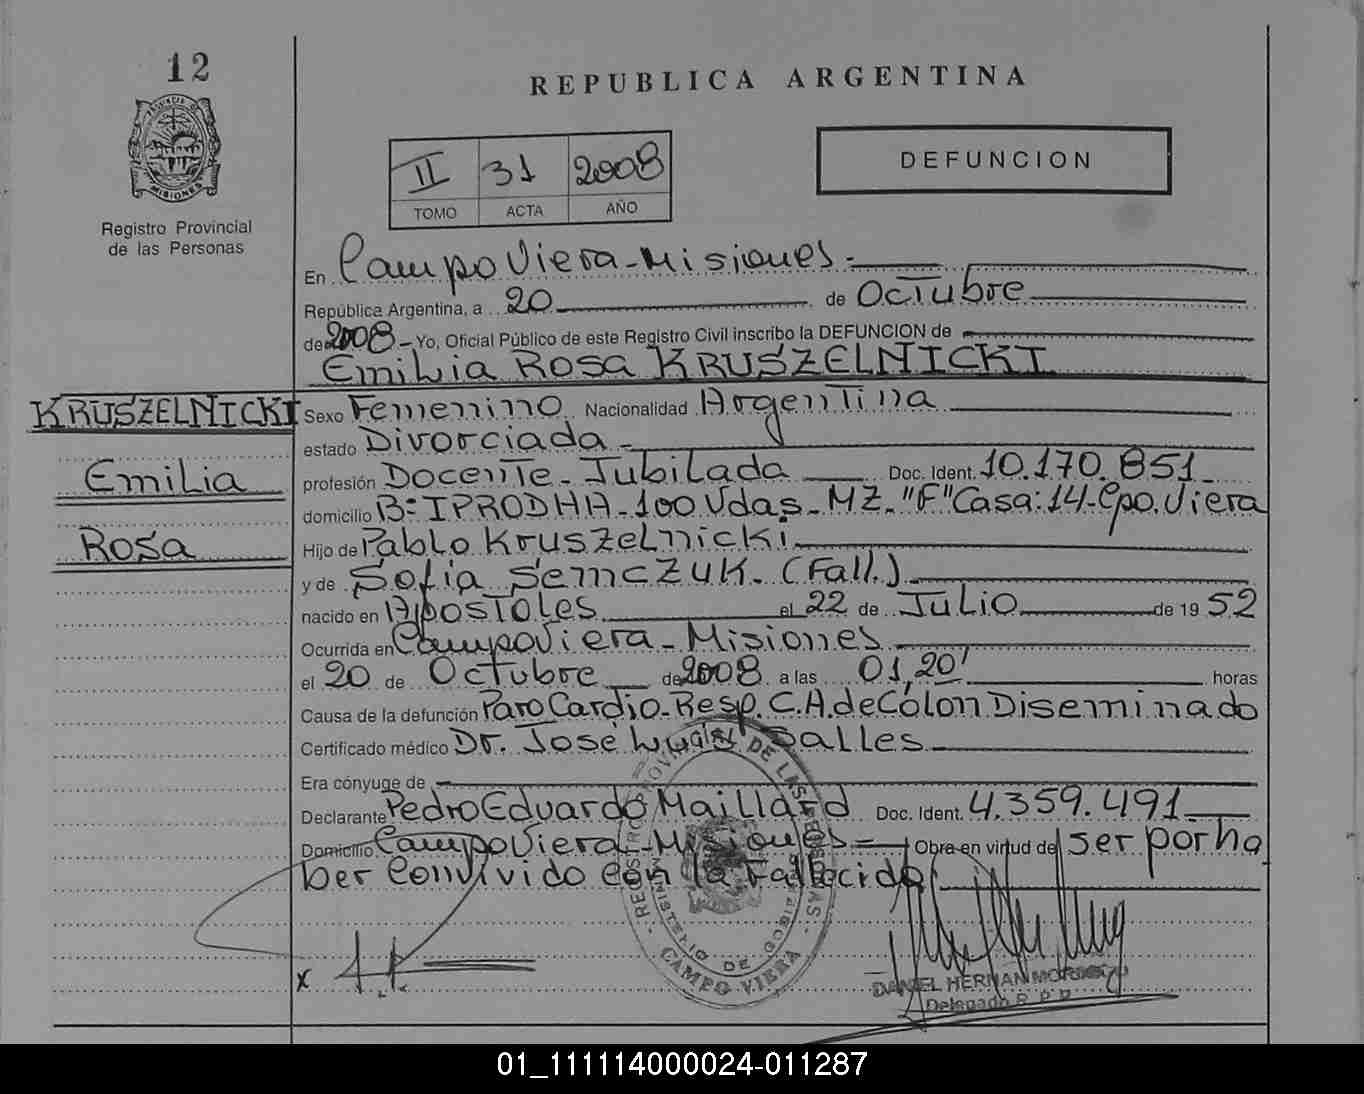 12
REPUBLICA ARGENTINA
PROVINCIA D
MISIONES
Registro Provincial
de las Personas
II 31 2008
TOMO ACTA AÑO
DEFUNCION
En Campo Viera - Misiones.-
República Argentina, a 20 de Octubre
de 2008 - Yo, Oficial Público de este Registro Civil inscribo la DEFUNCION de
Emilia Rosa KRUSZELNICKI
KRUSZELNICKI
Emilia
Rosa
Sexo Femenino Nacionalidad Argentina
estado Divorciada -
profesión Docente - Jubilada Doc. Ident. 10.170.851
domicilio B: IPRODHA - 100 Vdas - MZ. "F" Casa: 14 - Cpo. Viera
Hijo de Pablo Kruszelnicki
y de Sofia Semczuk. (Fall.)
nacido en Apostoles el 22 de Julio de 19 52
Ocurrida en Campo Viera - Misiones
el 20 de Octubre de 2008 a las 01,20' horas
Causa de la defunción Paro Cardio - Resp. C.A. de Cólon Diseminado
Certificado médico Dr. José Luis Salles
Era cónyuge de
Declarante Pedro Eduardo Maillard Doc. Ident. 4.359.491
Domicilio Campo Viera - Misiones Obra en virtud de ser por ha
ber Convivido Con la Fallecida
REGISTRO PROVINCIAL DE LAS PERSONAS
MINISTERIO DE GOBIERNO
CAMPO VIERA
x
DANIEL HERNAN
Delegado R.P.P.
01_111114000024-011287